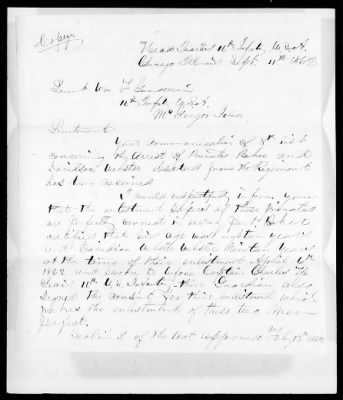 (Copy)
Head Quarters 11th Infty U.S.A.
Chicago Illinois Sept. 11th 1862
Lieut Wm.
11th Infty U.S.A.
McGregor Iowa
Lieutenant
Your communication of 8th inst
concerning the arrest of Privates Baker and
Davidson Webster deserters from the Regiment
has been received.
I would respectfully inform you
that the enlistment papers of these privates
are perfectly correct in every part. Baker
certifies that his age was years
and Davidson Webster years
at the time of their enlistment April 6th
1862 and sworn to before Captain Charles
11th U.S. Infantry, their Guardian also
signed the consent for their enlistment which
makes the enlistment of these two men
perfect.
Section 2 of the Act approved Feby 13th 1862